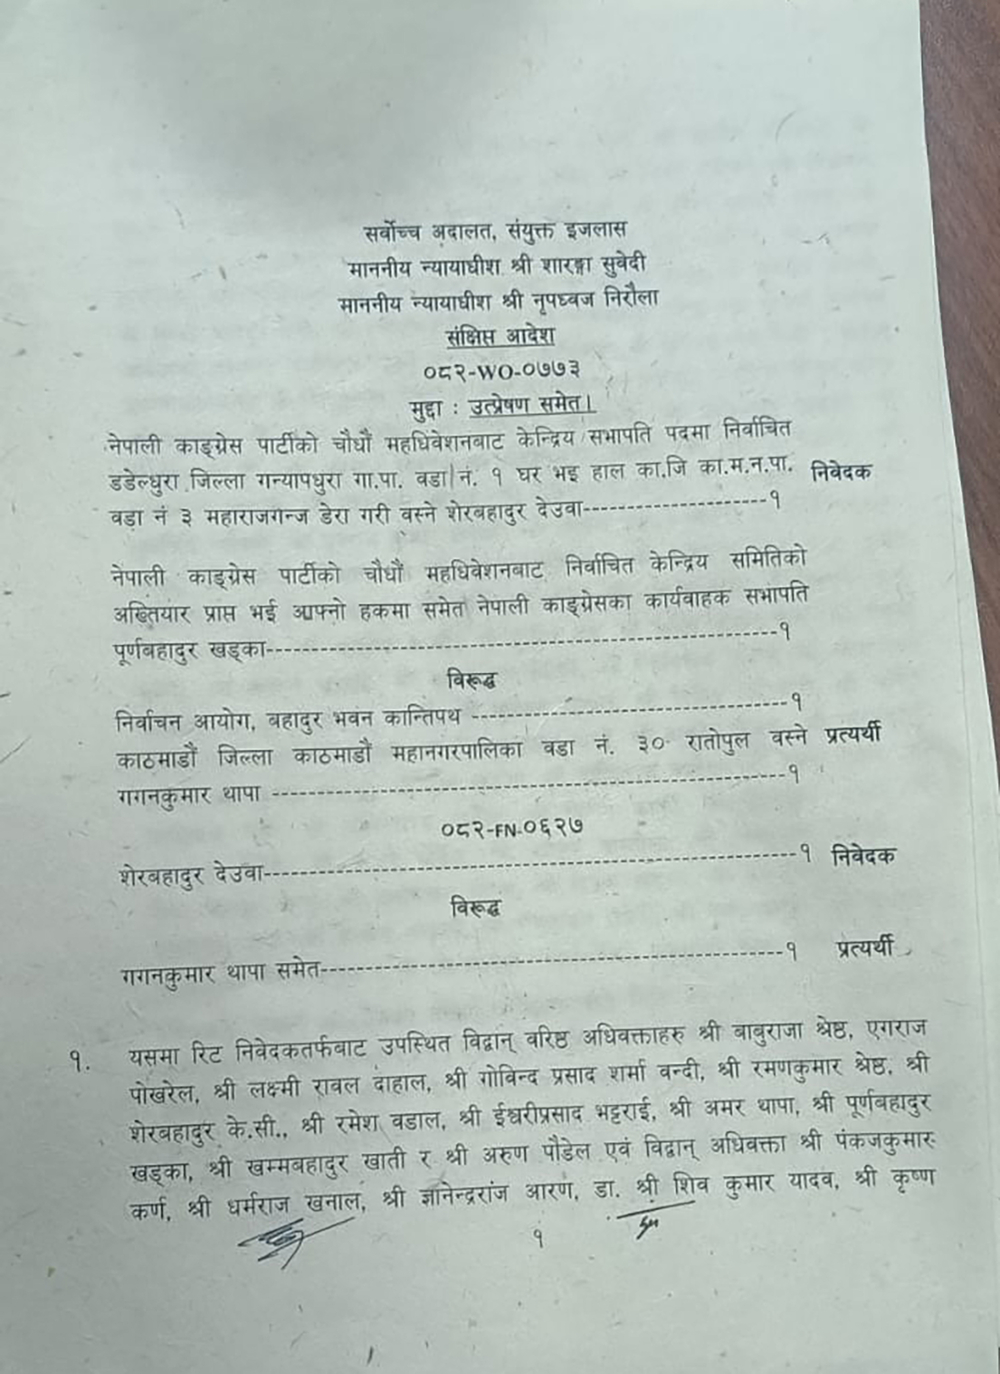 सर्वोच्च अदालत, संयुक्त इजलास
माननीय न्यायाधीश श्री शारङ्गा सुवेदी
माननीय न्यायाधीश श्री नृपध्वज निरौला
संक्षिप्त आदेश
०८२-WO-०७७३
मुद्दा : उत्प्रेषण समेत।
नेपाली काङग्रेस पार्टीको चौधौं महधिवेशनबाट केन्द्रिय सभापति पदमा निर्वाचित
डडेल्धुरा जिल्ला गन्यापधुरा गा.पा. वडा नं. १ घर भइ हाल का.जि का.म.न.पा. निवेदक
वडा नं ३ महाराजगन्ज डेरा गरी वस्ने शेरबहादुर देउवा--------------------१
नेपाली काङग्रेस पार्टीको चौधौं महधिवेशनबाट निर्वाचित केन्द्रिय समितिको
अख्तियार प्राप्त भई आफ्नो हकमा समेत नेपाली काङग्रेसका कार्यवाहक सभापति
पूर्णबहादुर खड्का--------------------------------------------------------१
विरूद्ध
निर्वाचन आयोग, बहादुर भवन कान्तिपथ ----------------------------------१
काठमाडौं जिल्ला काठमाडौं महानगरपालिका वडा नं. ३० रातोपुल वस्ने प्रत्यर्थी
गगनकुमार थापा --------------------------------------------------------१
०८२-FN-०६२७
शेरबहादुर देउवा----------------------------------------------------------१ निवेदक
विरूद्ध
गगनकुमार थापा समेत--------------------------------------------------१ प्रत्यर्थी
१. यसमा रिट निवेदकतर्फबाट उपस्थित विद्वान् वरिष्ठ अधिवक्ताहरु श्री बाबुराजा श्रेष्ठ, एगराज
पोखरेल, श्री लक्ष्मी रावल दाहाल, श्री गोविन्द प्रसाद शर्मा वन्दी, श्री रमणकुमार श्रेष्ठ, श्री
शेरबहादुर के.सी., श्री रमेश वडाल, श्री ईश्वरीप्रसाद भट्टराई, श्री अमर थापा, श्री पूर्णबहादुर
खड्का, श्री खम्मबहादुर खाती र श्री अरुण पौडेल एवं विद्वान् अधिवक्ता श्री पंकजकुमार
कर्ण, श्री धर्मराज खनाल, श्री ज्ञानेन्द्रराज आरण, डा. श्री शिव कुमार यादव, श्री कृष्ण
१